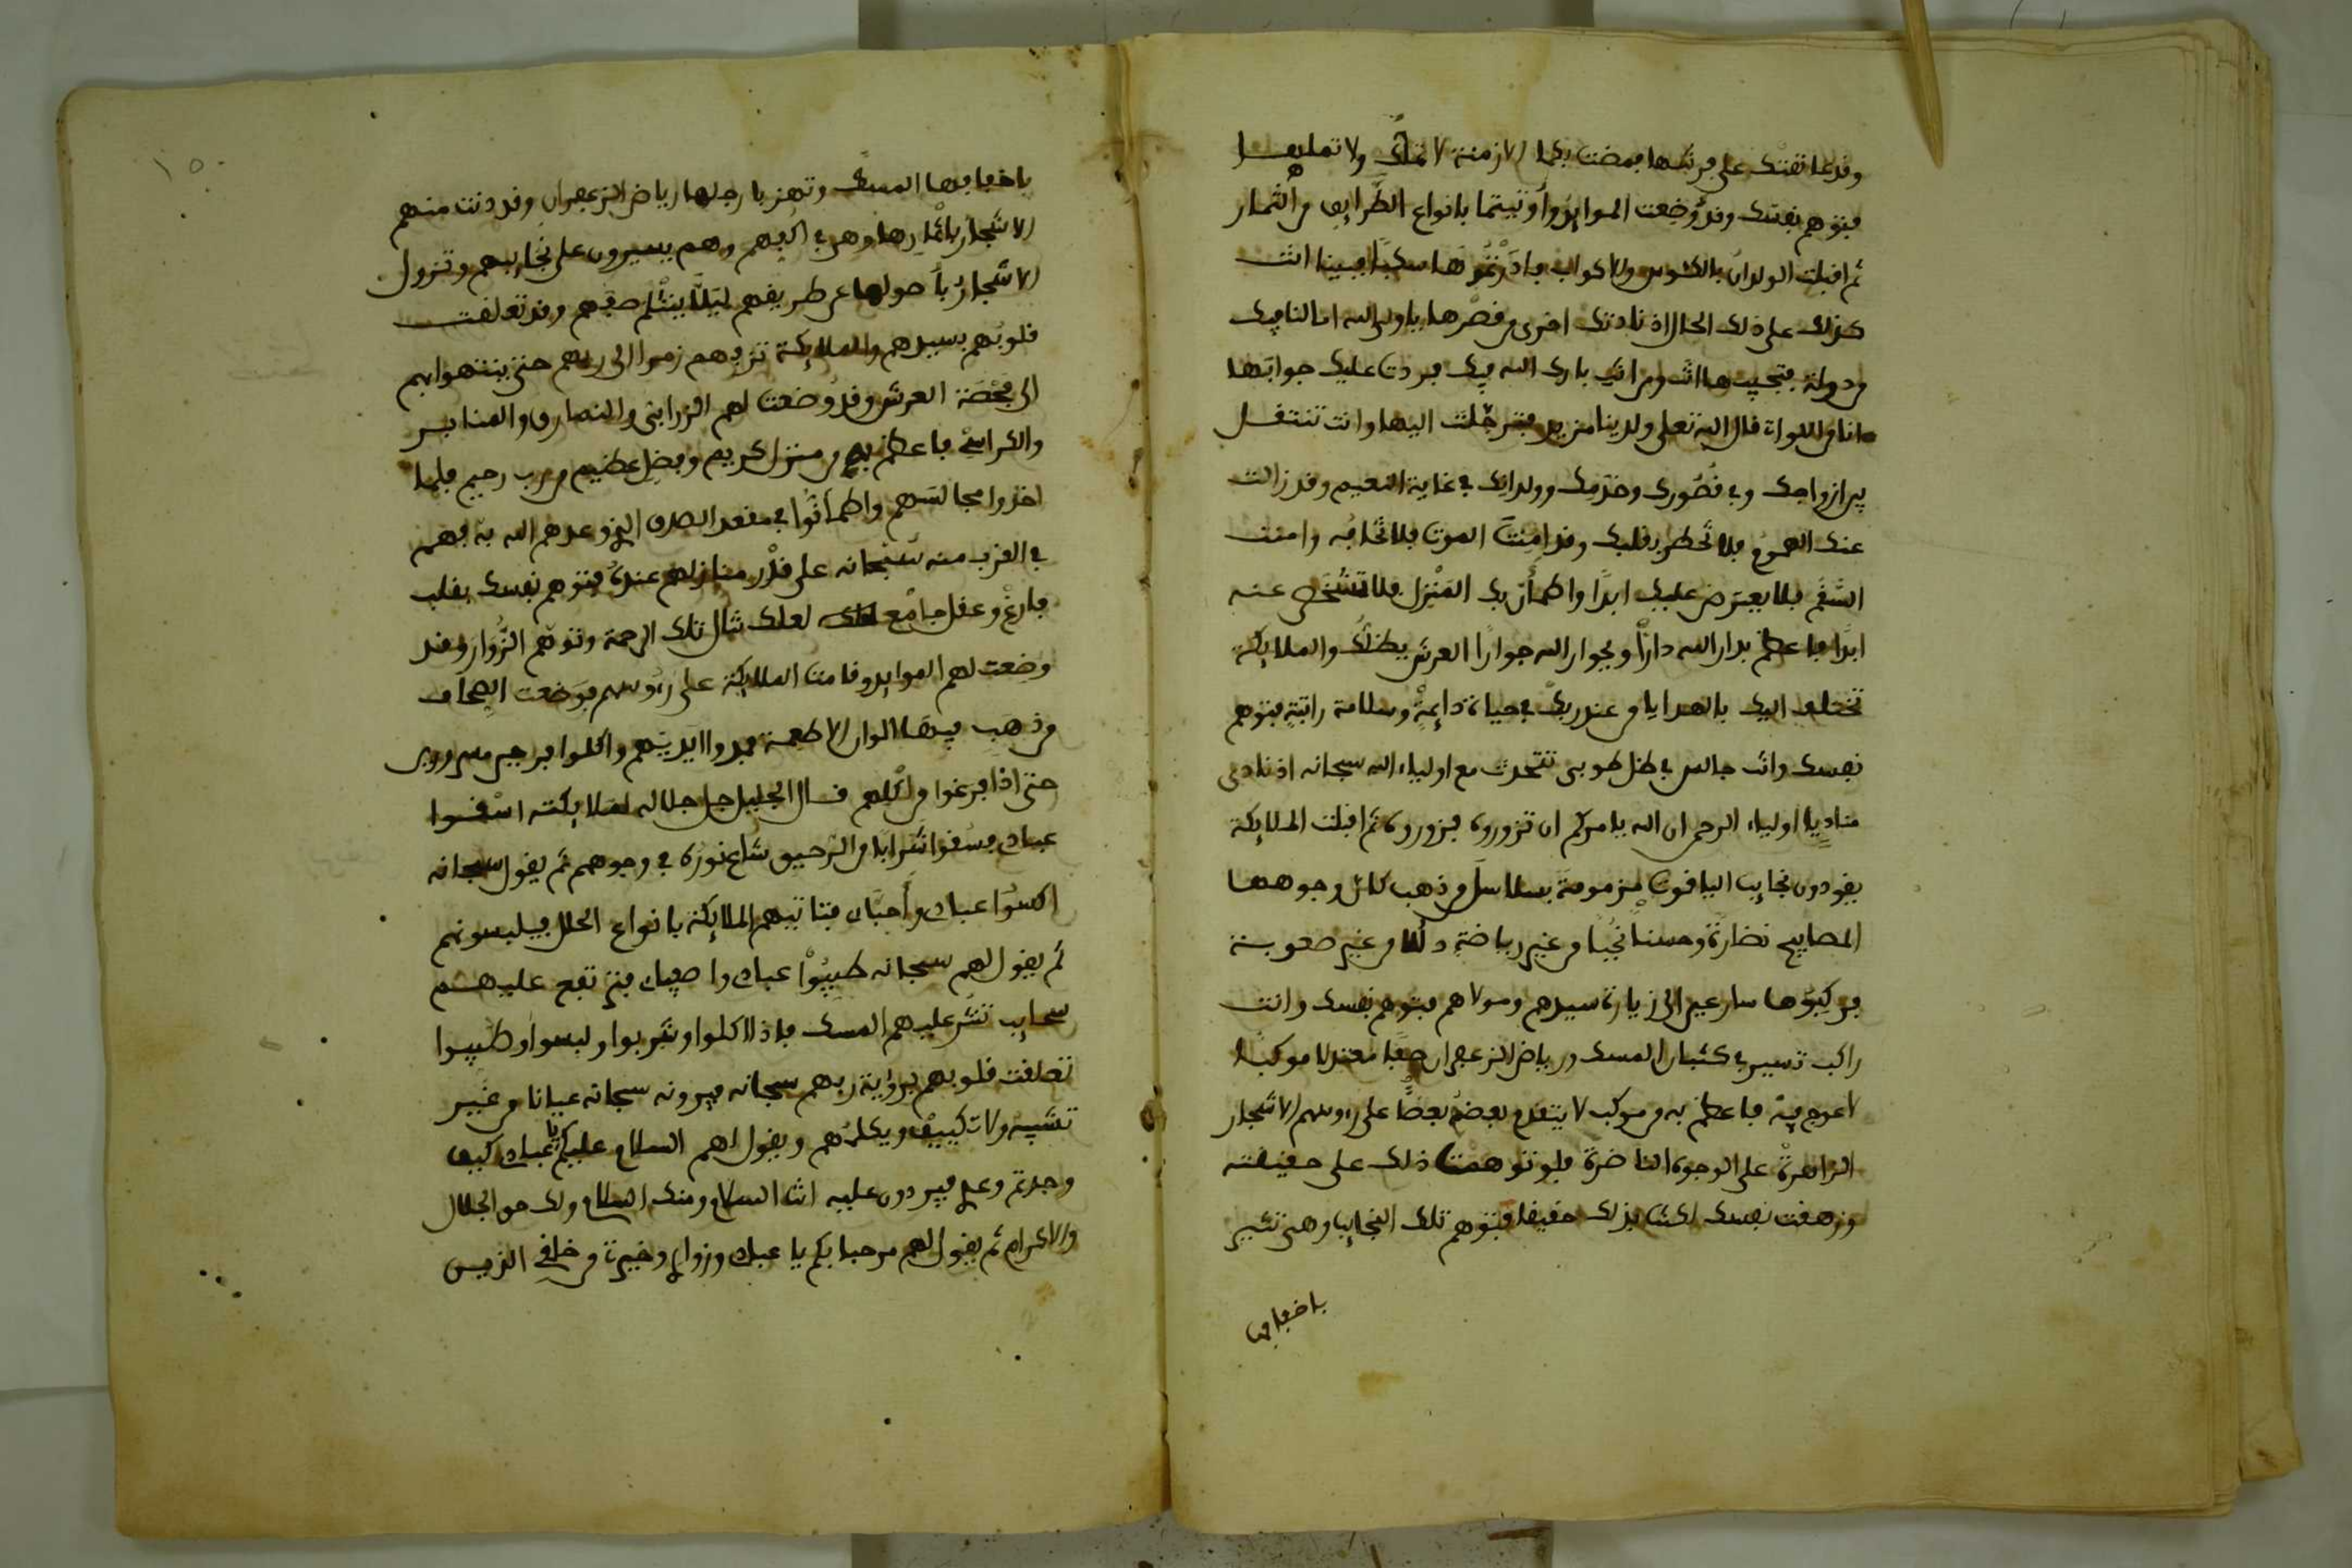 وقد عانقتك على فرشها فمضت بكما الازمنة لا تملك ولا تملها
فتوهم نفسك وقد وضعت الموايد وأوتيتما بانواع الطرايف من الثمار
ثم اقبلت الولدان بالكئوس والاكواب فادرتموها سكبا فبينا انت
كذلك على ذلك الحال اذ نادتك اخرى من قصرها يا ولي الله اما لنا فيك
من دولة فتجيبها انت ومن انت بارك الله فيك فردت عليك جوابها
انا من اللواتي قال الله تعلى ولدينا مزيد فترحلت اليها وانت تنتقل
بين ازواجك وفي قصورك وخدمك وولدانك في غاية النعيم وقد زالت
عنك الهموم فلا تخطر بقلبك وقد امنت الموت فلا تخافه وامنت
السقم فلا يعترض عليك ابدا واطمأن بك المنزل فلا تشخص عنه
ابدا فاعظم بدار الله دارا وبجوار الله جوارا العرش يظلك والملايكة
تختلف اليك بالهدايا من عند ربك في حياة دايمة وسلامة راتبة فتوهم
نفسك وانت جالس في ظل طوبى تتحدث مع اولياء الله سبحانه اذ نادى
مناد يا اولياء الرحمن ان الله يامركم ان تزوروه فزوروه ثم اقبلت الملايكة
يقودون نجايب الياقوت مزمومة بسلاسل من ذهب كأن وجوهها
المصابيح نضارة وحسنا نجبا من غير رياضة ذللا من غير صعوبة
فركبوها سارعين الى زيارة سيدهم ومولاهم فتوهم نفسك وانت
راكب تسير في كثبان المسك ورياض الزعفران صفا معتدلا موكبا
لا عوج فيه فاعظم به من موكب لا يتقدم بعضه بعضا على رءوسهم الاشجار
الزاهرة على الوجوه الناضرة فلو توهمت ذلك على حقيقته
وزهقت نفسك لكنت بذلك حقيقا فتوهم تلك النجايب وهي تثير
باخفافها
١٥٠
باخفافها المسك وتهز بارجلها رياض الزعفران وقد دنت منهم
الاشجار باثمارها وهي في اكفهم وهم يسيرون على نجايبهم وتزول
الاشجار باصولها عن طريقهم ليلا ينثلم صفهم وقد تعلقت
قلوبهم بسيدهم والملايكة تزفهم زمرا الى ربهم حتى ينتهوا بهم
الى فحصة العرش وقد وضعت لهم الزرابي والنمارق والمنابر
والكراسي فاعظم به من منزل كريم وفضل عظيم من رب رحيم فلما
اخذوا مجالسهم واطمأنوا في مقعد الصدق الذي وعدهم الله به فهم
في القرب منه سبحانه على قدر منازلهم عنده فتوهم نفسك بقلب
فارغ وعقل جامع لعلك تنال تلك الرحمة وتوهم الزوار وقد
وضعت لهم الموايد وقامت الملايكة على رءوسهم فوضعت الصحاف
من ذهب فيها الوان الاطعمة فمدوا ايديهم واكلوا فرحين مسرورين
حتى اذا فرغوا من اكلهم قال الجليل جل جلاله لملايكته اسقوا
عبادي فسقوا شرابا من الرحيق شاع نوره في وجوههم ثم يقول سبحانه
اكسوا عبادي وأحبائي فتاتيهم الملايكة بانواع الحلل فيلبسونهم
ثم يقول لهم سبحانه طيبوا عبادي واصفيائي فترتفع عليهم
سحايب تنثر عليهم المسك فاذا اكلوا وشربوا ولبسوا وطيبوا
تعلقت قلوبهم برؤية ربهم سبحانه فيرونه سبحانه عيانا من غير
تشبيه ولا تكييف ويكلمهم ويقول لهم السلام عليكم يا عبادي كيف
وجدتم وعدي فيردون عليه انت السلام ومنك السلام ولك حق الجلال
والاكرام ثم يقول لهم مرحبا بكم يا عبادي وزواري وخيرتي من خلقي الذين